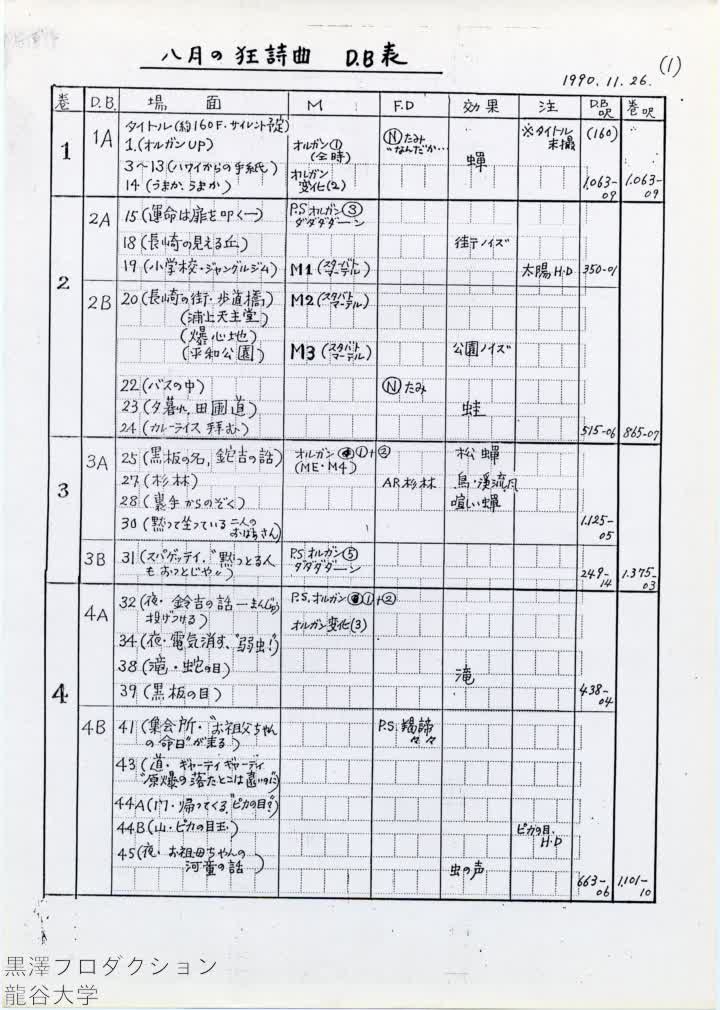 八月の狂詩曲 D.B表
(1)
1990.11.26.
巻 D.B. 場面 M F.D 効果 注 D.B呎 巻呎
1 1A タイトル(約160F.サイレント予定) ※タイトル未撮 (160)
1.(オルガンUP) オルガン①(全時) Ⓝたみ“なんだか… 蟬
3~13(ハワイからの手紙) オルガン変化(2)
14(うまか、うまか) 1.063-09 1.063-09
2 2A 15(運命は扉を叩く一) P.S オルガン③ダダダダーン
18(長崎の見える丘) 街ノイズ
19(小学校・ジャングルジム) M1(スターバトマーテル) 太陽H.D 350-01
2B 20(長崎の街・歩道橋) M2(スタバトマーテル)
(浦上天主堂)
(爆心地)
(平和公園) M3(スタバトマーテル) 公園ノイズ
22(バスの中) Ⓝたみ
23(夕暮れ,田圃道) 蛙
24(カレーライス拝む) 515-06 865-07
3 3A 25(黒板の名,鉈吉の話) オルガン①+②(ME・M4) 松蟬
27(杉林) AR杉林 鳥・渓流
28(裏手からのぞく) 喧しい蟬
30(黙って坐っている二人のおばあさん) 1.125-05
3B 31(スパゲッティ.“黙っとる人もおっとじゃ”) P.S オルガン⑤ダダダダーン 249-14 1.375-03
4 4A 32(夜・鈴吉の話ーまんじゅう投げつける) P.S.オルガン①+②
オルガン変化(3)
34(夜・電気消す、“弱虫!”)
38(滝・蛇の目) 滝
39(黒板の目) 438-04
4B 41(集会所・“お祖父ちゃんの命日”が来る) P.S.羯諦々々
43(道・ギャーティギャーティ“原爆の落たとこは遠いのに)
44A(門・帰ってくる“ピカの目?”)
44B(山・ピカの目玉) ピカの目.H.D
45(夜・お祖母ちゃんの河童の話) 虫の声 663-06 1,101-10
黒澤プロダクション
龍谷大学